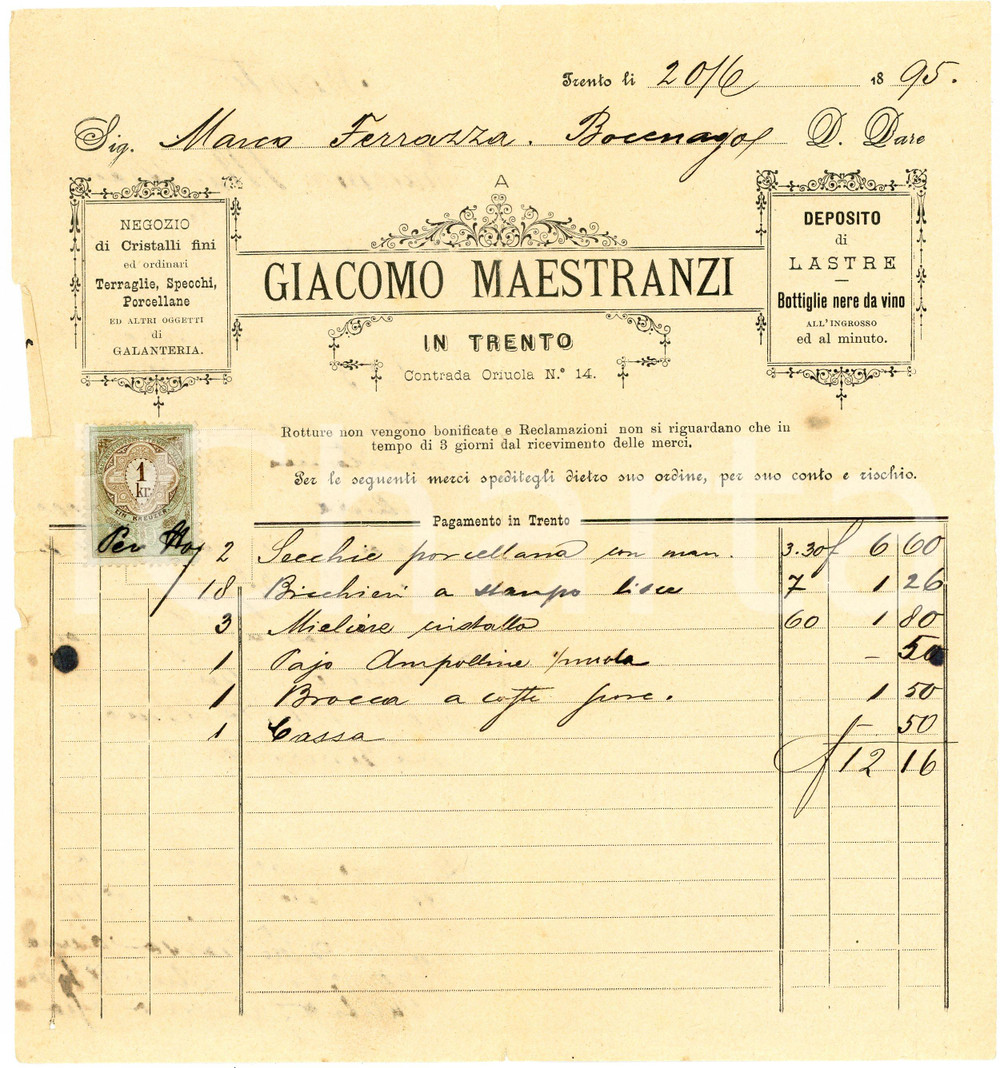 Trento li 20/6 1895.
Sig. Marco Ferrazza. Bocenago D. Dare
A
NEGOZIO
di Cristalli fini
ed ordinari
Terraglie, Specchi,
Porcellane
ED ALTRI OGGETTI
di
GALANTERIA.
GIACOMO MAESTRANZI
IN TRENTO
Contrada Oriuola N.° 14.
DEPOSITO
di
LASTRE
Bottiglie nere da vino
ALL'INGROSSO
ed al minuto.
Rotture non vengono bonificate e Reclamazioni non si riguardano che in
tempo di 3 giorni dal ricevimento delle merci.
Per le seguenti merci speditegli dietro suo ordine, per suo conto e rischio.
1
kr.
EIN KREUZER
Pagamento in Trento
Per 2 Secchie porcellana con man. 3.30 f 6 60
18 Bicchieri a stampo lisci 7 1 26
3 cristallo 60 1 80
1 Pajo Ampolline - 50
1 Brocca a caffe porc. 1 50
1 Cassa - 50
f 12 16